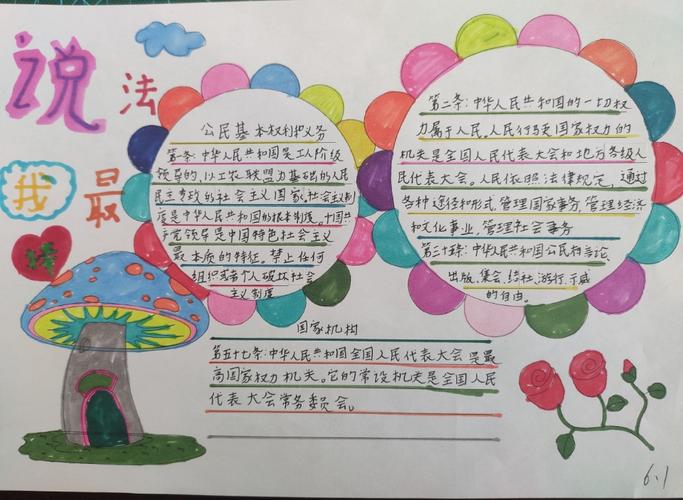 说
法
我
最
棒
公民基本权利和义务
第一条:中华人民共和国是工人阶级
领导的,以工农联盟为基础的人民
民主专政的社会主义国家,社会主义制
度是中华人民共和国的根本制度。中国共
产党领导是中国特色社会主义
最本质的特征。禁止任何
组织或者个人破坏社会
主义制度
第二条:中华人民共和国的一切权
力属于人民。人民行使国家权力的
机关是全国人民代表大会和地方各级人
民代表大会。人民依照法律规定,通过
各种途径和形式,管理国家事务,管理经济
和文化事业,管理社会事务
第三十五条:中华人民共和国公民有言论、
出版、集会、结社、游行、示威
的自由。
国家机构
第五十七条:中华人民共和国全国人民代表大会是最
高国家权力机关。它的常设机关是全国人民
代表大会常务委员会。
6.1